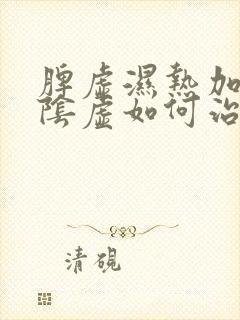 脾虛濕熱加
陰虛如何治
清硯